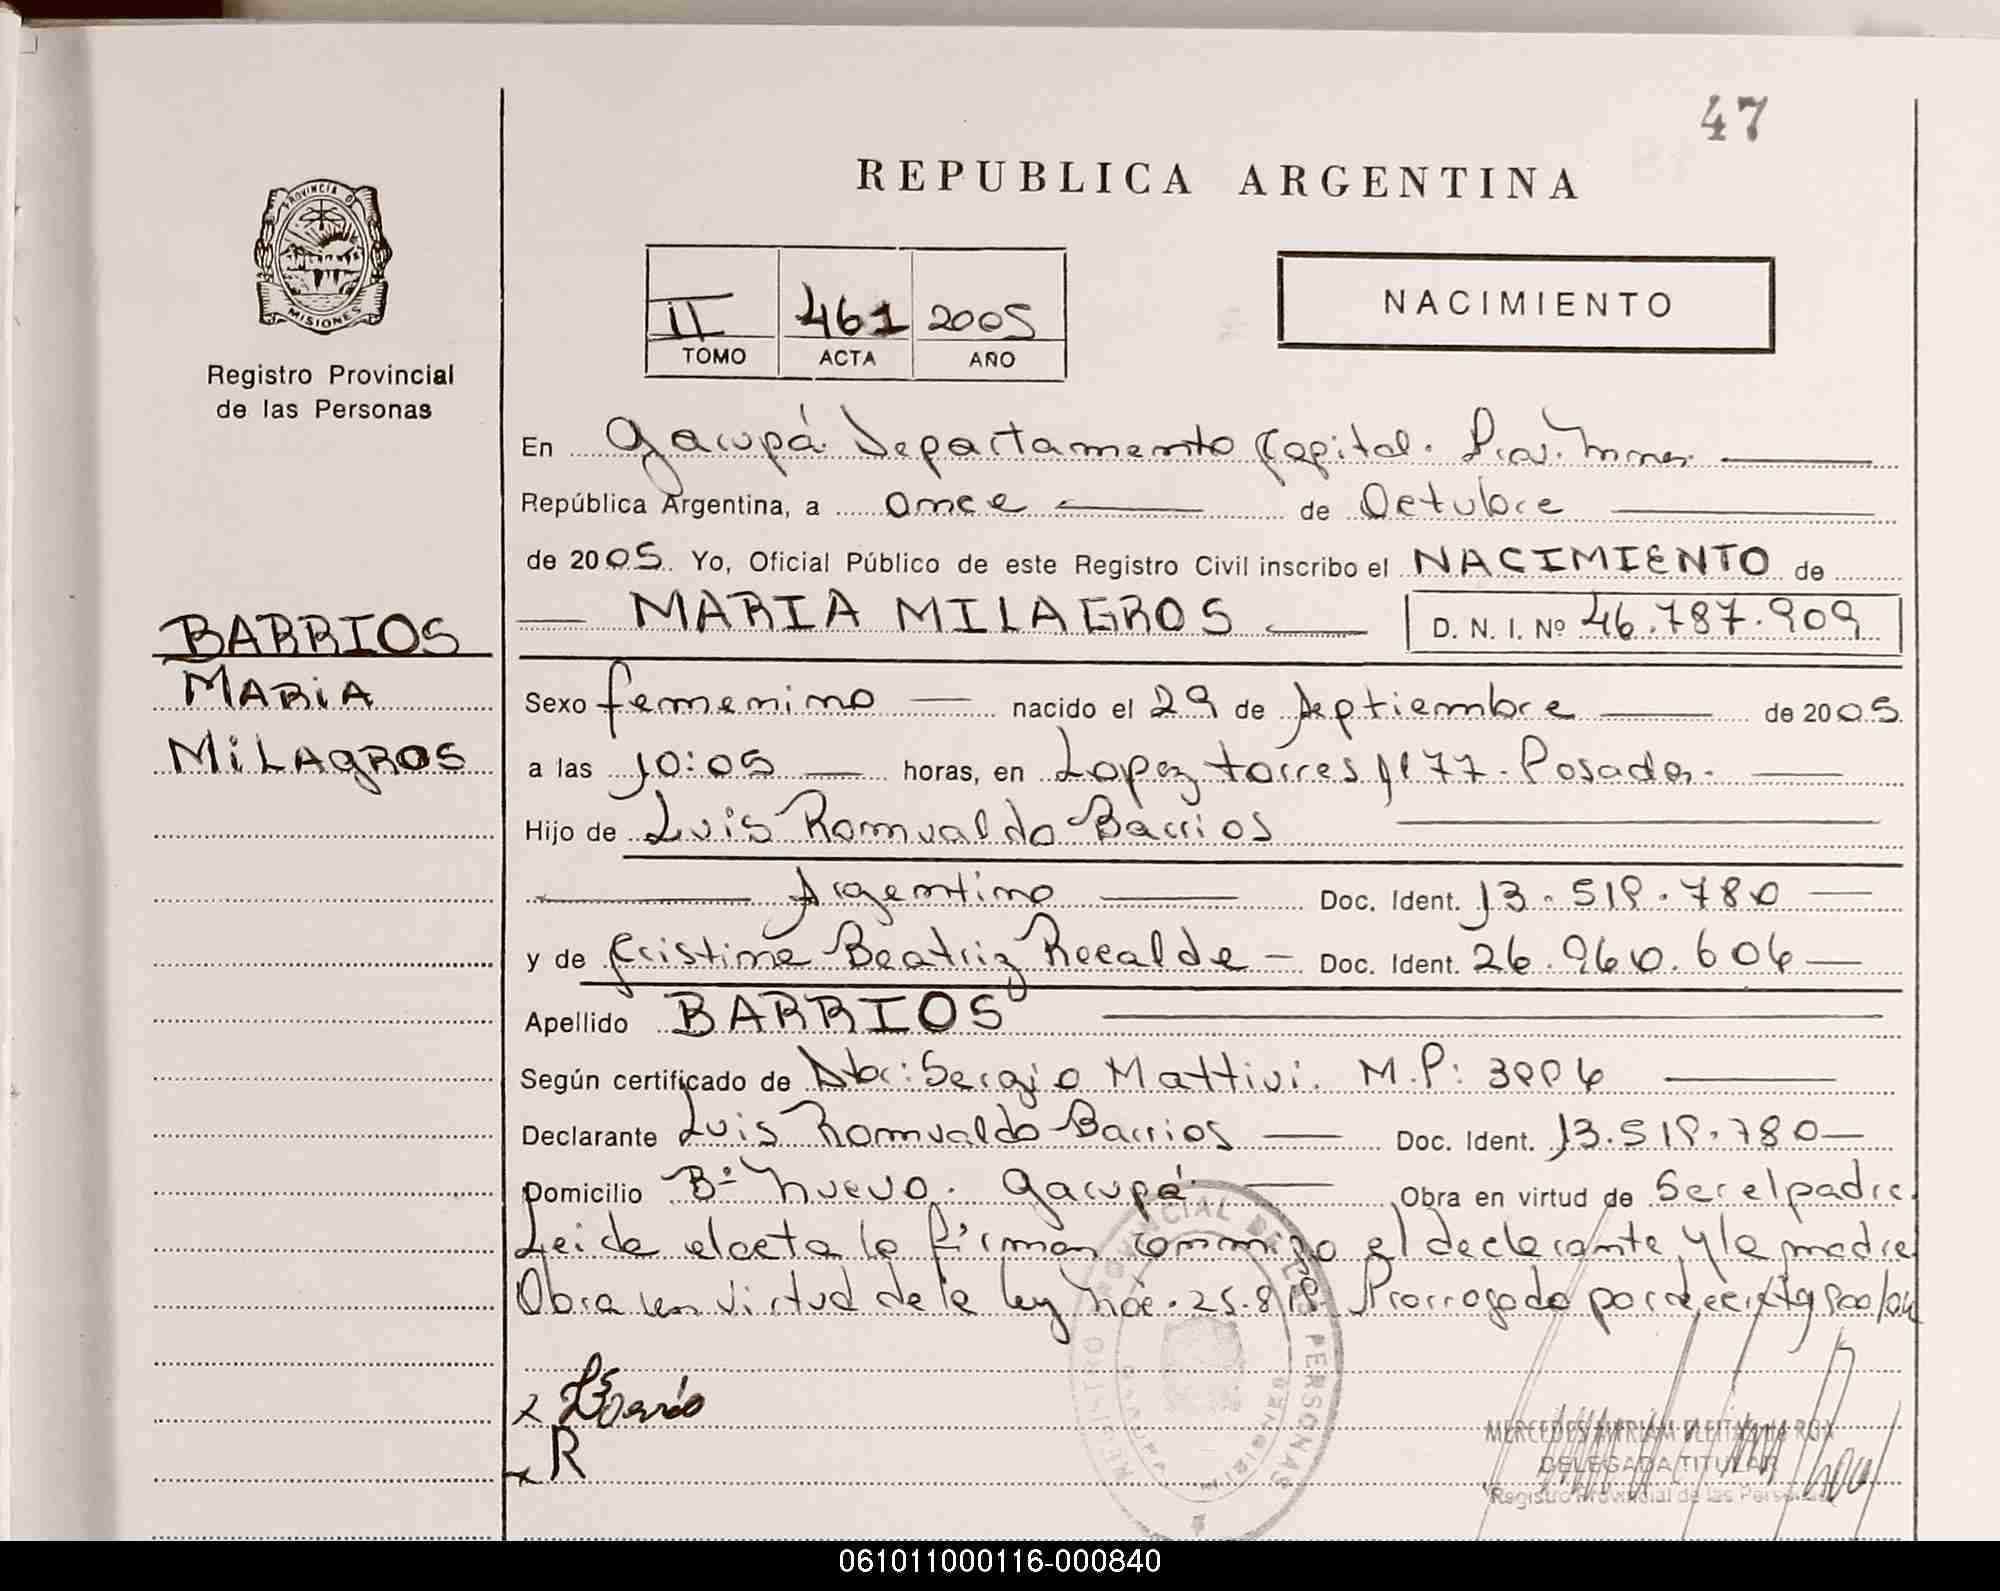 47
REPUBLICA ARGENTINA
PROVINCIA DE
MISIONES
Registro Provincial
de las Personas
II 461 2005
TOMO ACTA AÑO
NACIMIENTO
En Garupá. Departamento Capital. Prov. Mnes.
República Argentina, a once de Octubre
de 2005. Yo, Oficial Público de este Registro Civil inscribo el NACIMIENTO de
MARIA MILAGROS D. N. I. Nº 46.787.909
BARRIOS
MARIA
MILAGROS
Sexo femenino nacido el 29 de Septiembre de 2005.
a las 10:05 horas, en Lopez torres 1177. Posadas.
Hijo de Luis Romualdo Barrios
Argentino Doc. Ident. 13.518.780
y de Cristina Beatriz Recalde Doc. Ident. 26.960.606
Apellido BARRIOS
Según certificado de Sergio Mattivi. M.P:
Declarante Luis Romualdo Barrios Doc. Ident. 13.518.780
Domicilio Bº Nuevo. Garupá Obra en virtud de Ser el padre.
Leida el acta la firman conmigo el declarante y la madre
Obra en virtud de la ley Nro. 25.819. Prorrogado por
x LBarrios
x R
REGISTRO PROVINCIAL DE LAS PERSONAS
MERCEDES MYRIAM
DELEGADA TITULAR
Registro Provincial de las Personas
061011000116-000840